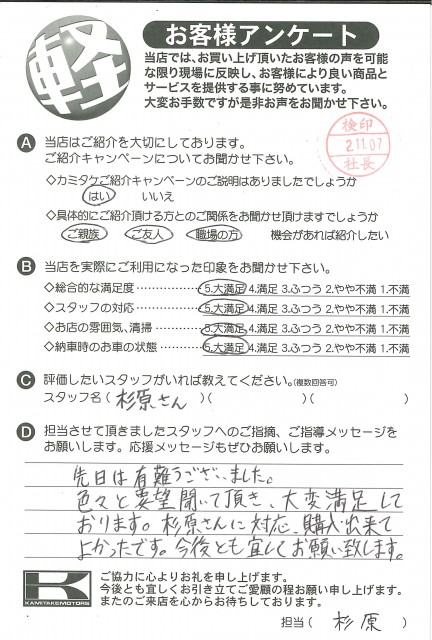 軽
お客様アンケート
当店では、お買い上げ頂いたお客様の声を可能
な限り現場に反映し、お客様により良い商品と
サービスを提供する事に努めています。
大変お手数ですが是非お声をお聞かせ下さい。
A 当店はご紹介を大切にしております。
ご紹介キャンペーンについてお聞かせ下さい。
検印
2.11.07
社長
◇カミタケご紹介キャンペーンのご説明はありましたでしょうか
はい いいえ
◇具体的にご紹介頂ける方とのご関係をお聞かせ頂けますでしょうか
ご親族 ご友人 職場の方 機会があれば紹介したい
B 当店を実際にご利用になった印象をお聞かせ下さい。
◇総合的な満足度…………5.大満足 4.満足 3.ふつう 2.やや不満 1.不満
◇スタッフの対応…………5.大満足 4.満足 3.ふつう 2.やや不満 1.不満
◇お店の雰囲気、清掃………5.大満足 4.満足 3.ふつう 2.やや不満 1.不満
◇納車時のお車の状態………5.大満足 4.満足 3.ふつう 2.やや不満 1.不満
C 評価したいスタッフがいれば教えてください。(複数回答可)
スタッフ名(杉原さん )( )( )
D 担当させて頂きましたスタッフへのご指摘、ご指導メッセージを
お願いします。応援メッセージもぜひお願いします。
先日は有難うございました。
色々と要望聞いて頂き、大変満足して
おります。杉原さんに対応、購入出来て
よかったです。今後とも宜しくお願い致します。
K
KAMITAKEMOTORS
ご協力に心よりお礼を申し上げます。
今後とも宜しくお引き立てご愛顧の程お願い申し上げます。
またのご来店を心からお待ちしております。
担当( 杉原 )